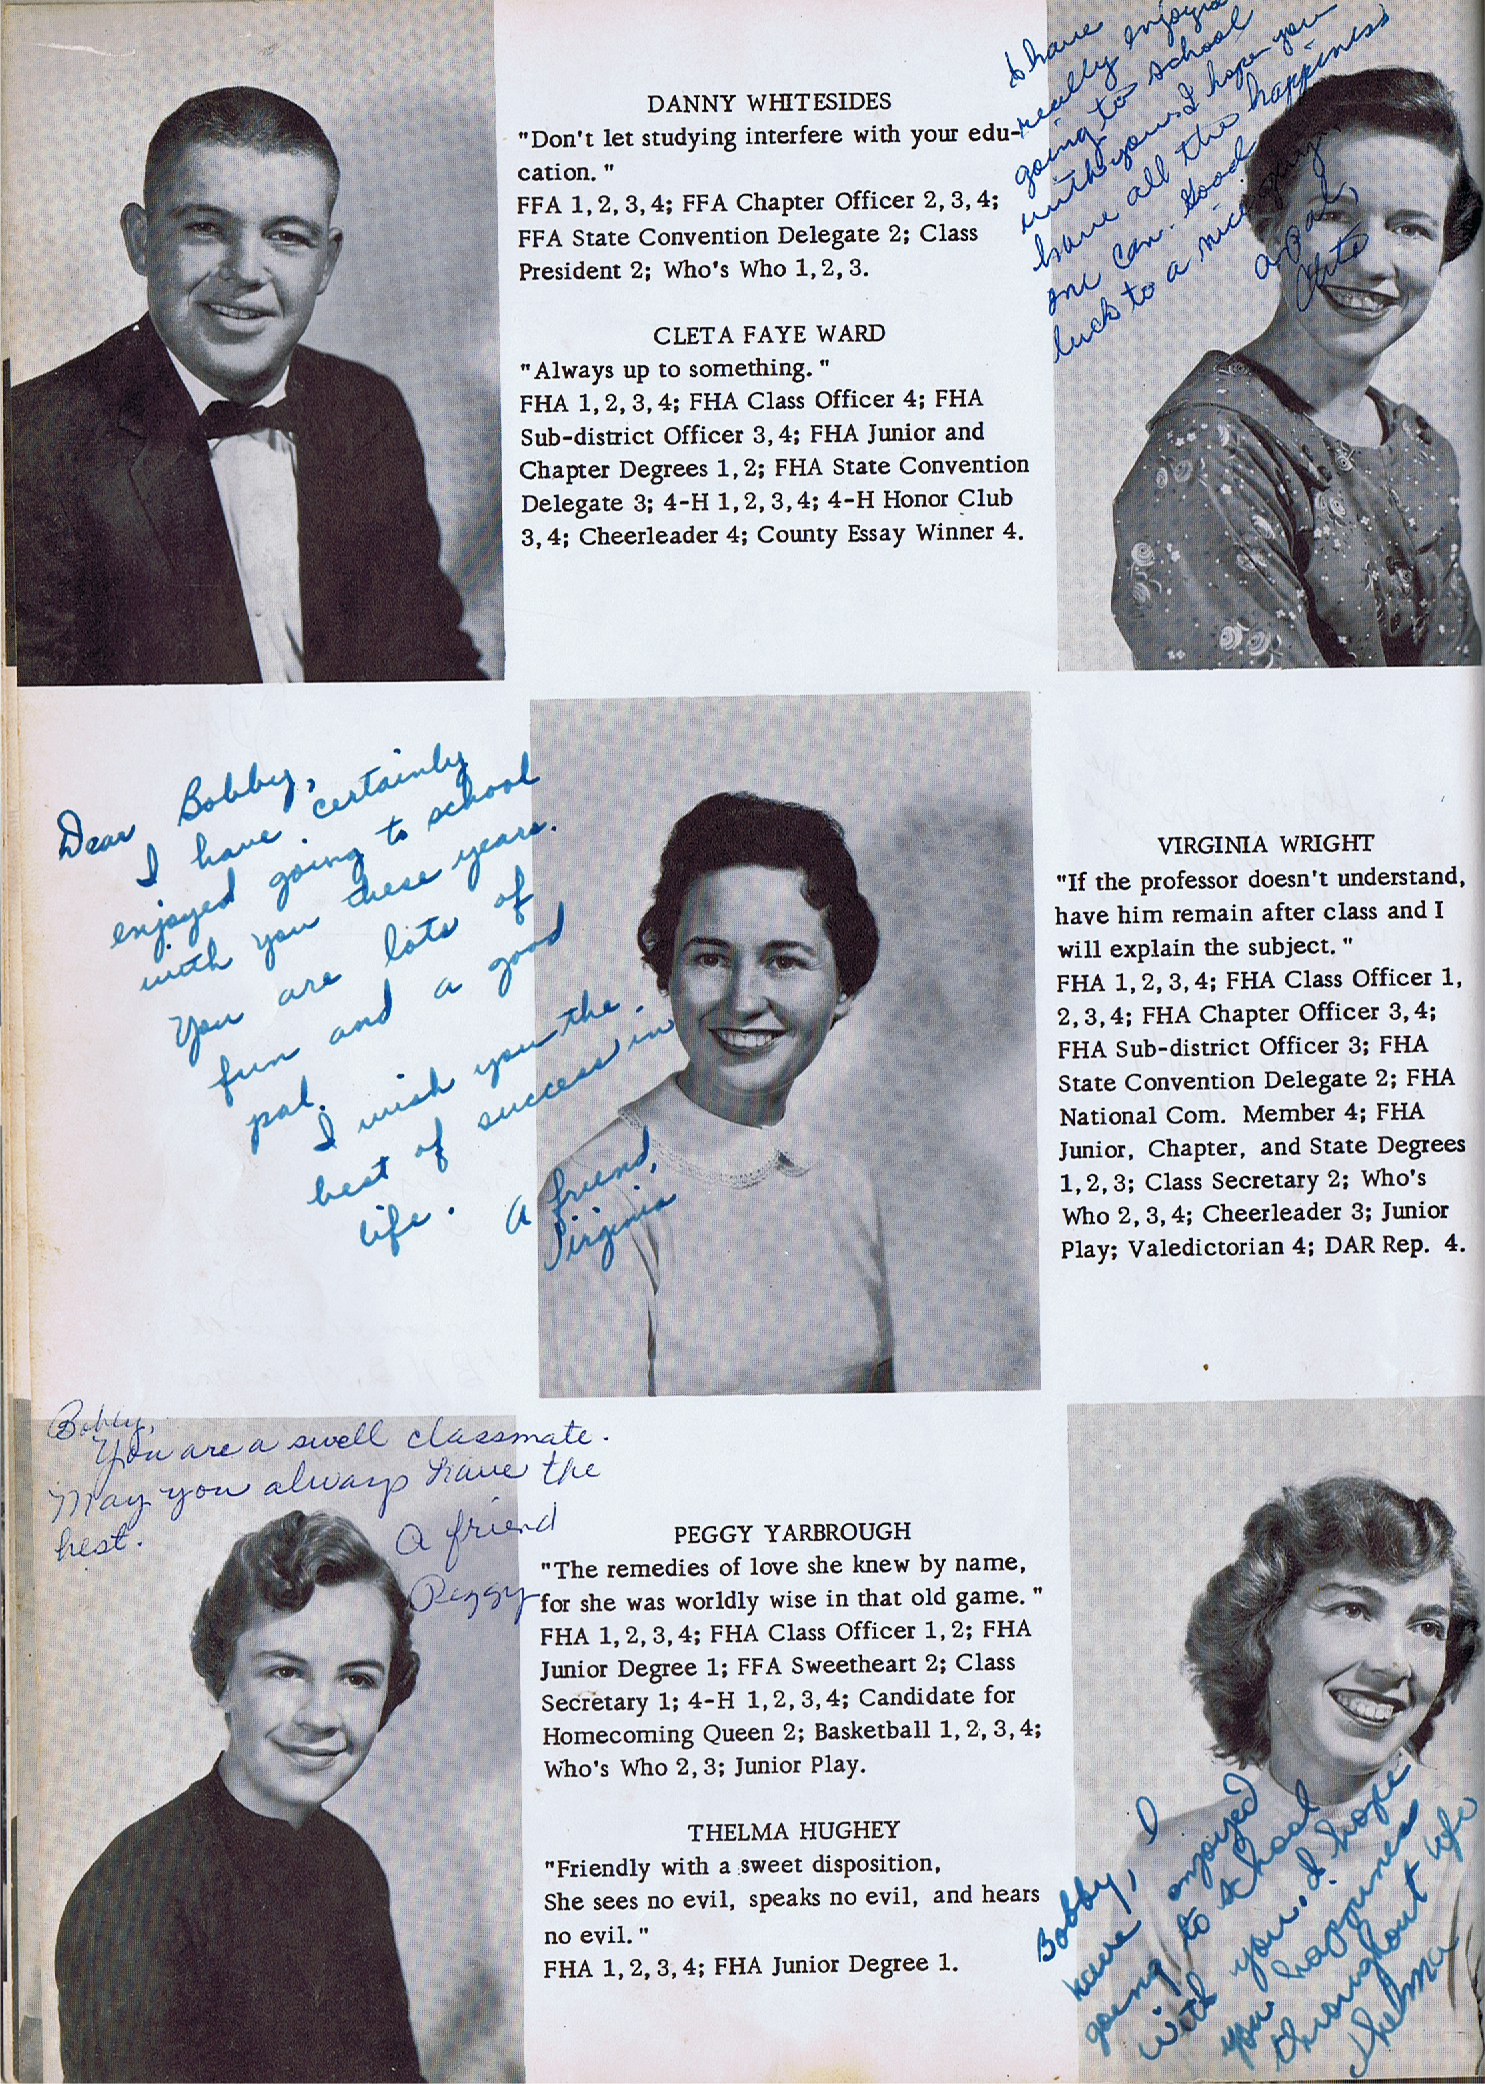 DANNY WHITESIDES
"Don't let studying interfere with your edu-
cation."
FFA 1, 2, 3, 4; FFA Chapter Officer 2, 3, 4;
FFA State Convention Delegate 2; Class
President 2; Who's Who 1, 2, 3.
CLETA FAYE WARD
"Always up to something."
FHA 1, 2, 3, 4; FHA Class Officer 4; FHA
Sub-district Officer 3, 4; FHA Junior and
Chapter Degrees 1, 2; FHA State Convention
Delegate 3; 4-H 1, 2, 3, 4; 4-H Honor Club
3, 4; Cheerleader 4; County Essay Winner 4.
I have
really enjoyed
going to school
with you. I hope you
have all the happiness
one can. Good
luck to a nice guy.
a pal,
Cleta
Dear Bobby,
I have certainly
enjoyed going to school
with you these years.
You are lots of
fun and a good
pal.
I wish you the
best of success in
life. A friend,
Virginia
VIRGINIA WRIGHT
"If the professor doesn't understand,
have him remain after class and I
will explain the subject."
FHA 1, 2, 3, 4; FHA Class Officer 1,
2, 3, 4; FHA Chapter Officer 3, 4;
FHA Sub-district Officer 3; FHA
State Convention Delegate 2; FHA
National Com. Member 4; FHA
Junior, Chapter, and State Degrees
1, 2, 3; Class Secretary 2; Who's
Who 2, 3, 4; Cheerleader 3; Junior
Play; Valedictorian 4; DAR Rep. 4.
Bobby,
You are a swell classmate.
May you always have the
best.
A friend
Peggy
PEGGY YARBROUGH
"The remedies of love she knew by name,
for she was worldly wise in that old game."
FHA 1, 2, 3, 4; FHA Class Officer 1, 2; FHA
Junior Degree 1; FFA Sweetheart 2; Class
Secretary 1; 4-H 1, 2, 3, 4; Candidate for
Homecoming Queen 2; Basketball 1, 2, 3, 4;
Who's Who 2, 3; Junior Play.
THELMA HUGHEY
"Friendly with a sweet disposition,
She sees no evil, speaks no evil, and hears
no evil."
FHA 1, 2, 3, 4; FHA Junior Degree 1.
Bobby, I
have enjoyed
going to school
with you, I hope
you happiness
throughout life
Thelma